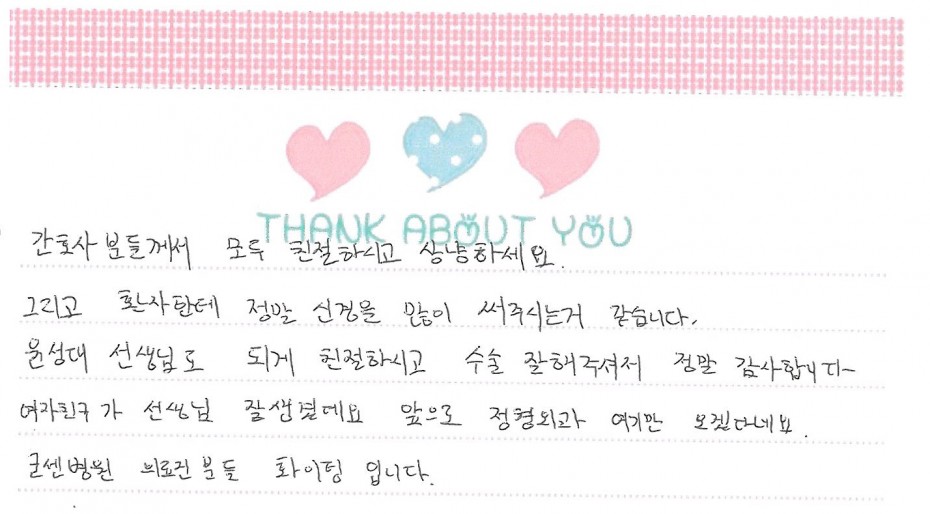 THANK ABOUT YOU
간호사 분들께서 모두 친절하시고 상냥하세요.
그리고 환자한테 정말 신경을 많이 써주시는거 같습니다.
윤성대 선생님도 되게 친절하시고 수술 잘해주셔서 정말 감사합니다~
여자친구가 선생님 잘생겼데요 앞으로 정형외과 여기만 오겠다네요.
굳센병원 의료진분들 화이팅 입니다.